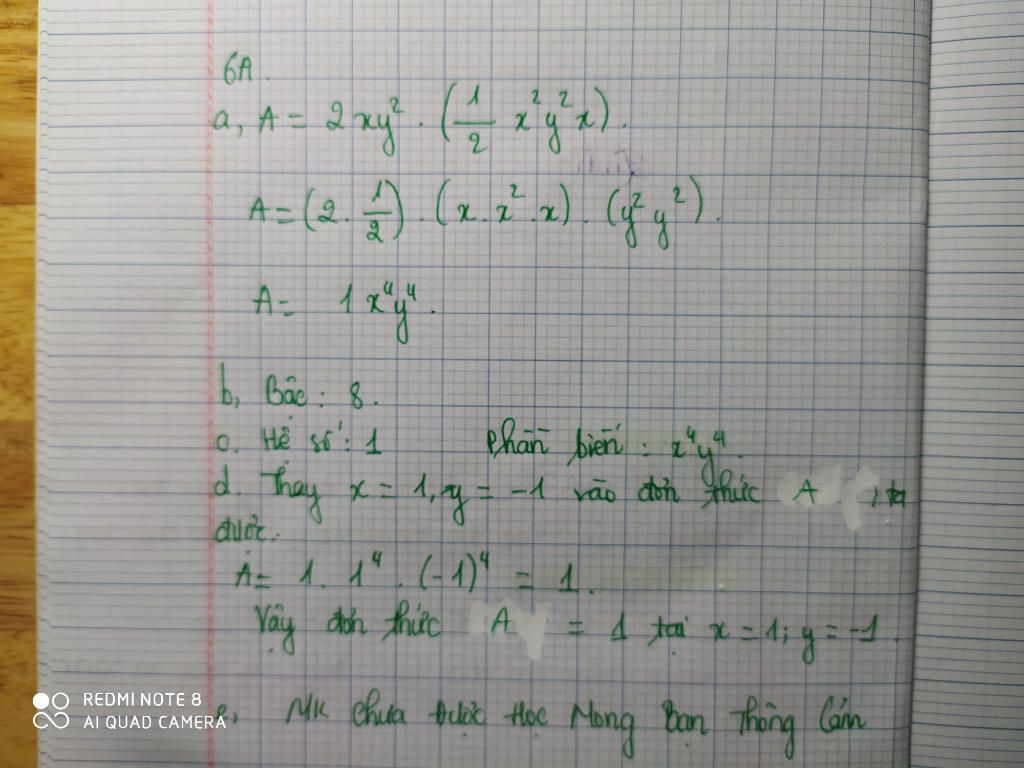 6A.
a, A = 2xy² . (1/2 x²y²x).
A = (2 . 1/2) . (x . x² . x) . (y² y²).
A = 1 x⁴y⁴.
b, Bậc : 8.
c. Hệ số : 1 Phần biến : x⁴y⁴.
d. Thay x = 1, y = -1 vào đơn thức A , ta
được.
A = 1 . 1⁴ . (-1)⁴ = 1.
Vậy đơn thức A = 1 tại x = 1; y = -1.
e, Mk chưa được Học Mong Bạn Thông Cảm
REDMI NOTE 8
AI QUAD CAMERA